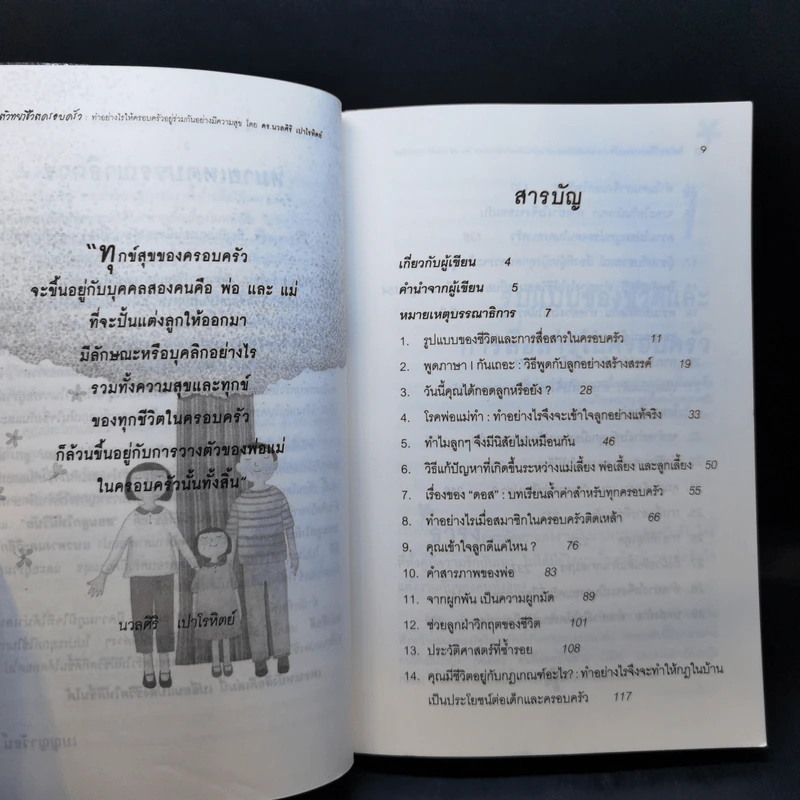 จิตวิทยาชีวิตครอบครัว : ทำอย่างไรให้ครอบครัวอยู่ร่วมกันอย่างมีความสุข โดย ดร.นวลศิริ เปาโรหิตย์
"ทุกข์สุขของครอบครัว
จะขึ้นอยู่กับบุคคลสองคนคือ พ่อ และ แม่
ที่จะปั้นแต่งลูกให้ออกมา
มีลักษณะหรือบุคลิกอย่างไร
รวมทั้งความสุขและทุกข์
ของทุกชีวิตในครอบครัว
ก็ล้วนขึ้นอยู่กับการวางตัวของพ่อแม่
ในครอบครัวนั้นทั้งสิ้น"
นวลศิริ เปาโรหิตย์
9
สารบัญ
เกี่ยวกับผู้เขียน 4
คำนำจากผู้เขียน 5
หมายเหตุบรรณาธิการ 7
1. รูปแบบของชีวิตและการสื่อสารในครอบครัว 11
2. พูดภาษา I กันเถอะ : วิธีพูดกับลูกอย่างสร้างสรรค์ 19
3. วันนี้คุณได้กอดลูกหรือยัง ? 28
4. โรคพ่อแม่ทำ : ทำอย่างไรจึงจะเข้าใจลูกอย่างแท้จริง 33
5. ทำไมลูกๆ จึงมีนิสัยไม่เหมือนกัน 46
6. วิธีแก้ปัญหาที่เกิดขึ้นระหว่างแม่เลี้ยง พ่อเลี้ยง และลูกเลี้ยง 50
7. เรื่องของ "ดอส" : บทเรียนล้ำค่าสำหรับทุกครอบครัว 55
8. ทำอย่างไรเมื่อสมาชิกในครอบครัวติดเหล้า 66
9. คุณเข้าใจลูกดีแค่ไหน ? 76
10. คำสารภาพของพ่อ 83
11. จากผูกพัน เป็นความผูกมัด 89
12. ช่วยลูกฝ่าวิกฤตของชีวิต 101
13. ประวัติศาสตร์ที่ซ้ำรอย 108
14. คุณมีชีวิตอยู่กับกฎเกณฑ์อะไร? : ทำอย่างไรจึงจะทำให้กฎในบ้าน
เป็นประโยชน์ต่อเด็กและครอบครัว 117